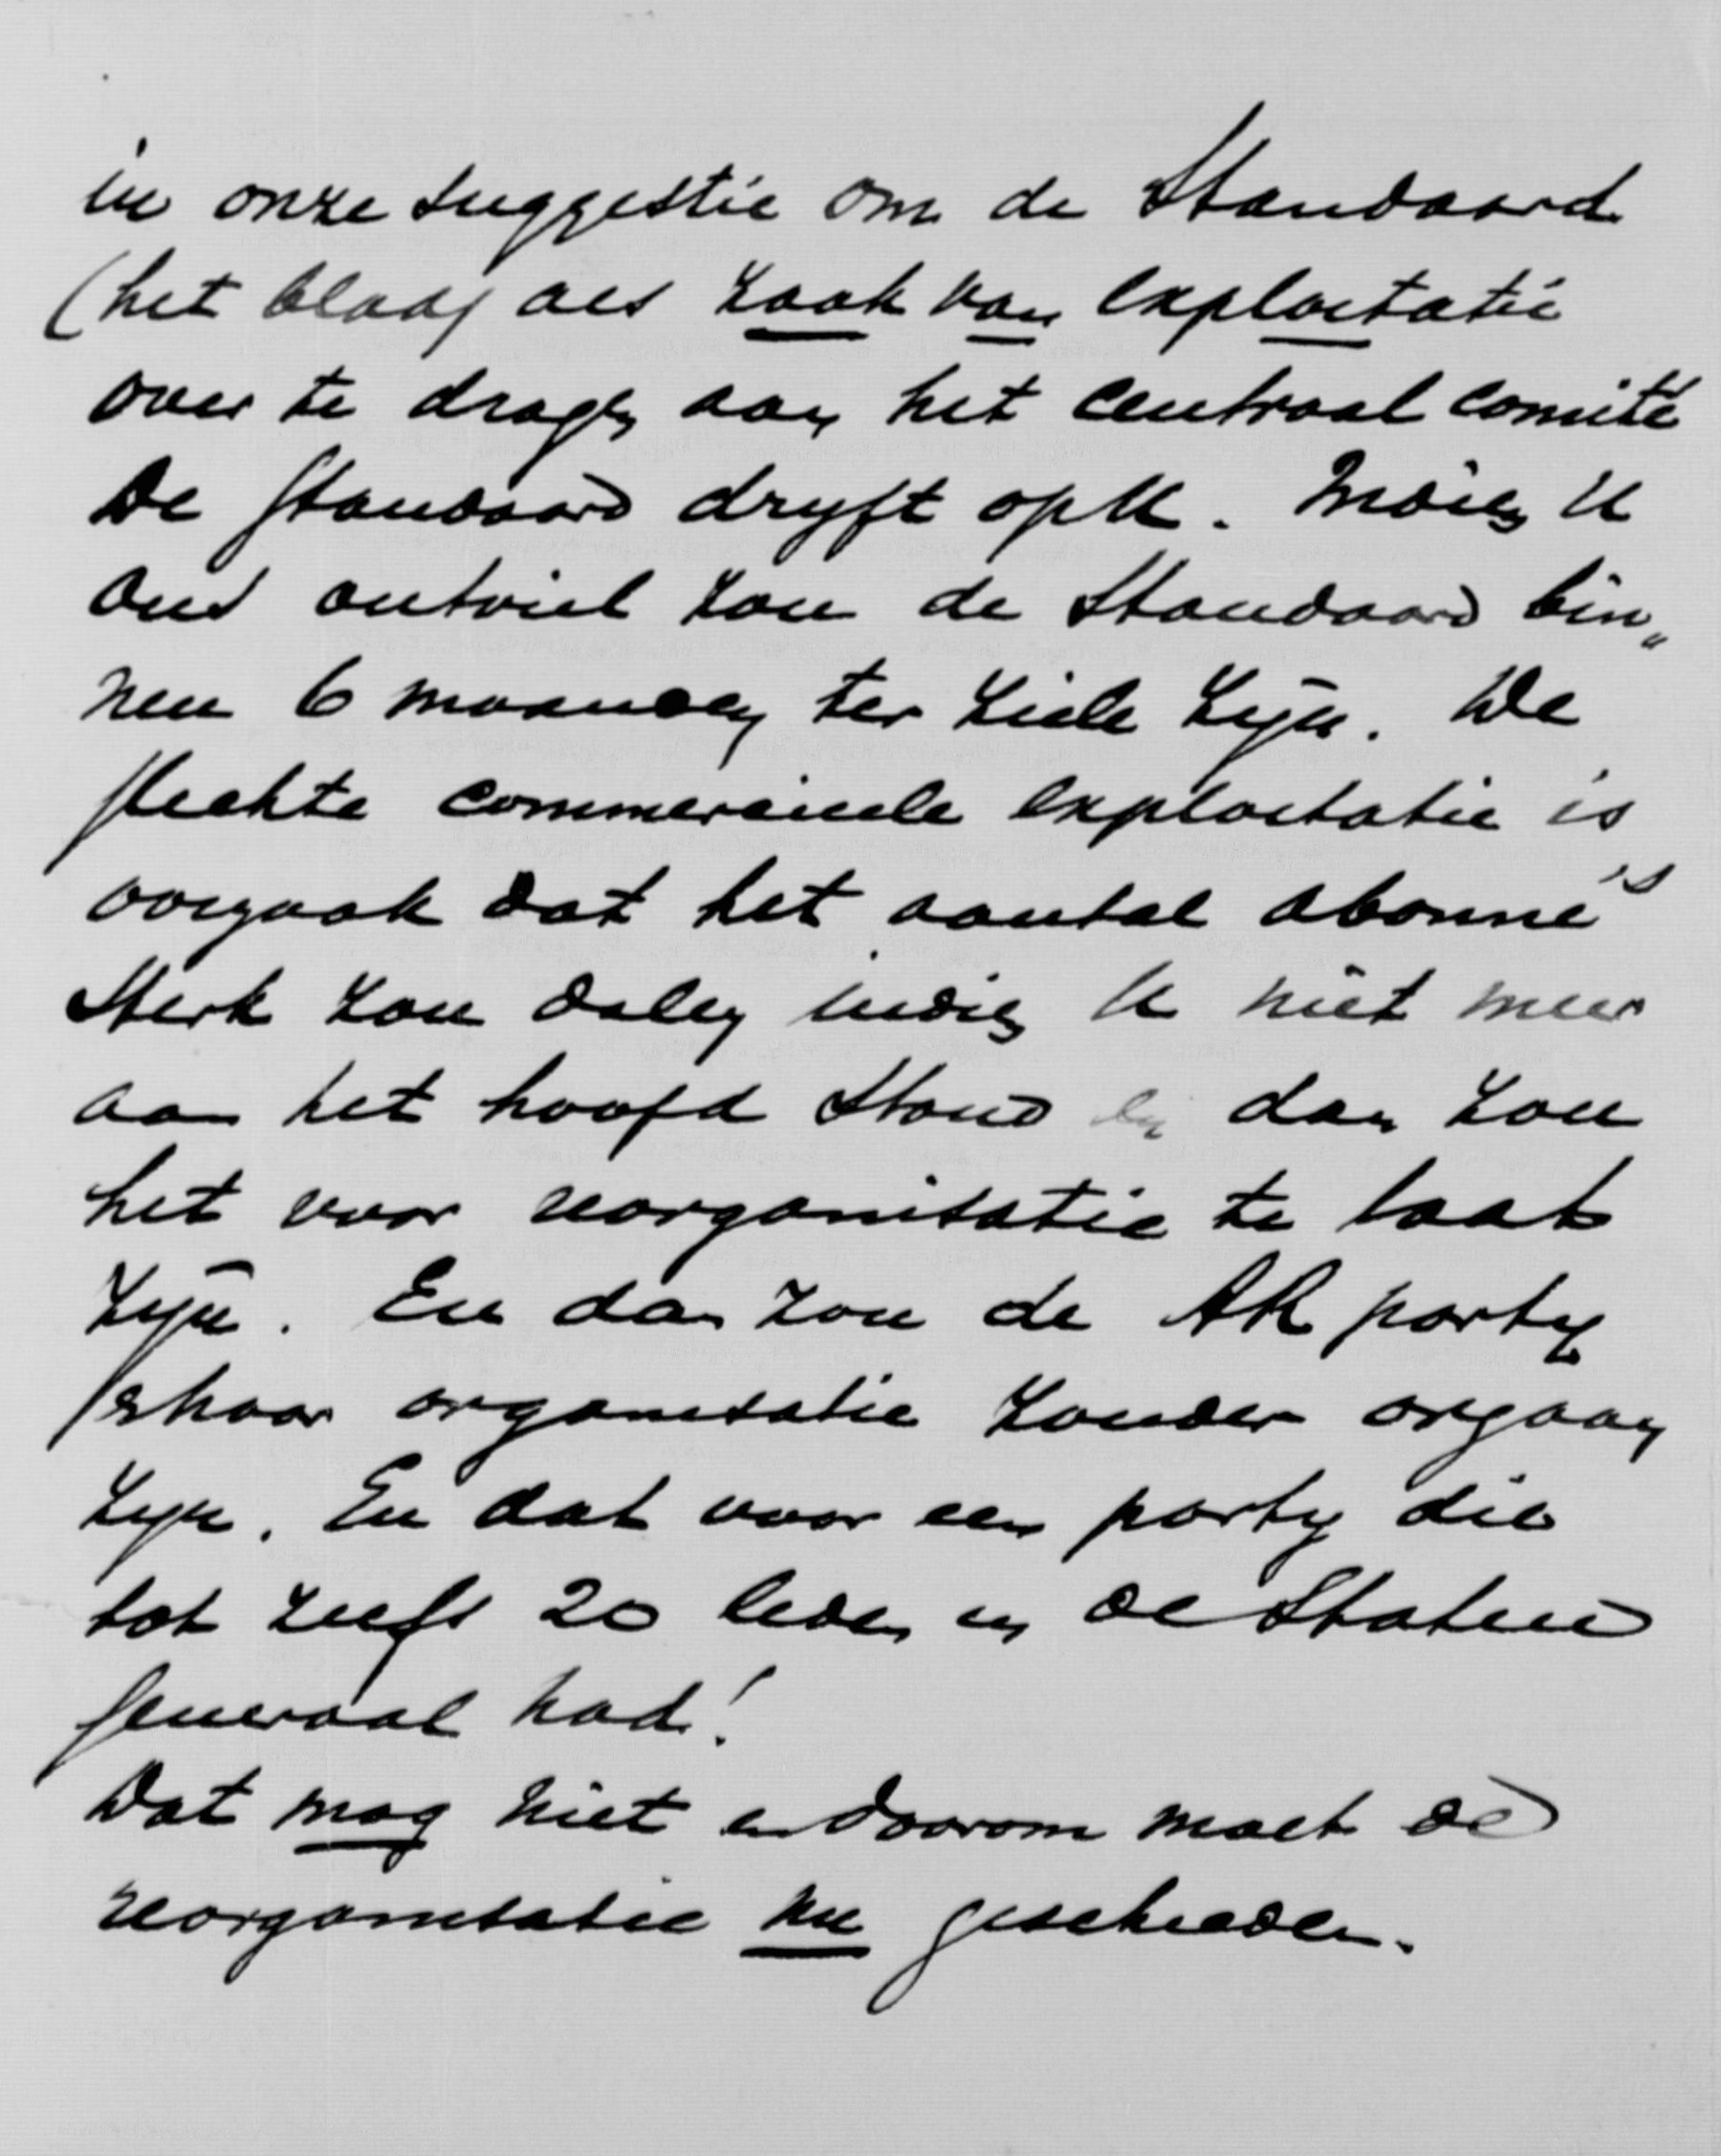 in onze suggestie om de Standaard
(het blad) als zaak van exploitatie
over te dragen aan het Centraal Comité
De Standaard dryft op U. Indien U
ons ontviel zou de Standaard bin„
nen 6 maanden ter ziele zijn. De
slechte commercieele exploitatie is
oorzaak dat het aantal abonné's
sterk zou dalen indien U niet meer
aan het hoofd stond dan zou
het voor reorganisatie te laat
zijn. En dan zou de AR party
haar organisatie zonder orgaan
zyn. En dat voor een party die
tot zelfs 20 leden in de Staten
Generaal had!
Dat mag niet en daarom moet de
reorganisatie nu geschieden.